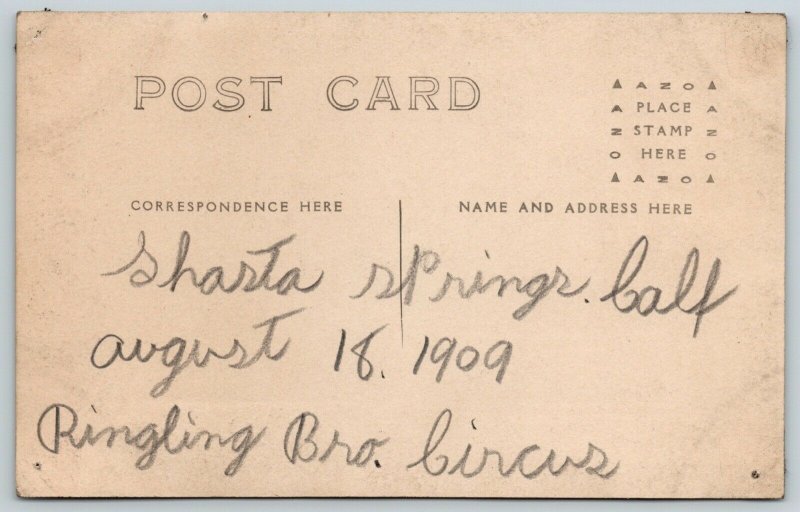 POST CARD
▲ A Z O ▲
A PLACE A
N STAMP Z
O HERE O
▲ A Z O ▲
CORRESPONDENCE HERE
NAME AND ADDRESS HERE
Shasta sPrings. Calf
august 18. 1909
Ringling Bro. Circus